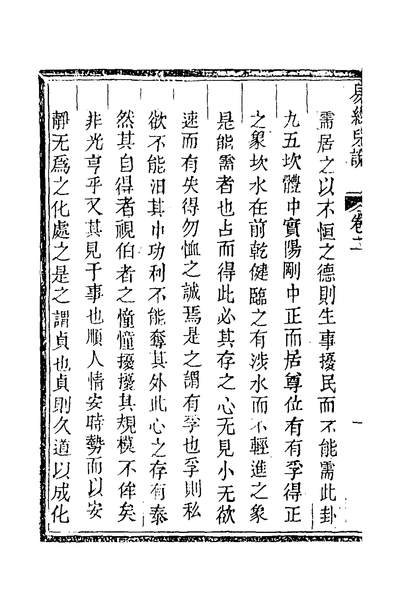 易經
卷二
一
需居之以不恒之德則生事擾民而不能需此卦
九五坎體中實陽剛中正而居尊位有有孚得正
之象坎水在前乾健臨之有涉水而不輕進之象
是能需者也占而得此必其存之心无見小无欲
速而有失得勿恤之誠焉是之謂有孚也孚則私
欲不能汨其中功利不能奪其外此心之存有泰
然其自得者視伯者之憧憧擾擾其規模不侔矣
非光亨乎又其見于事也順人情安時勢而以安
靜无為之化處之是之謂貞也貞則久道以成化